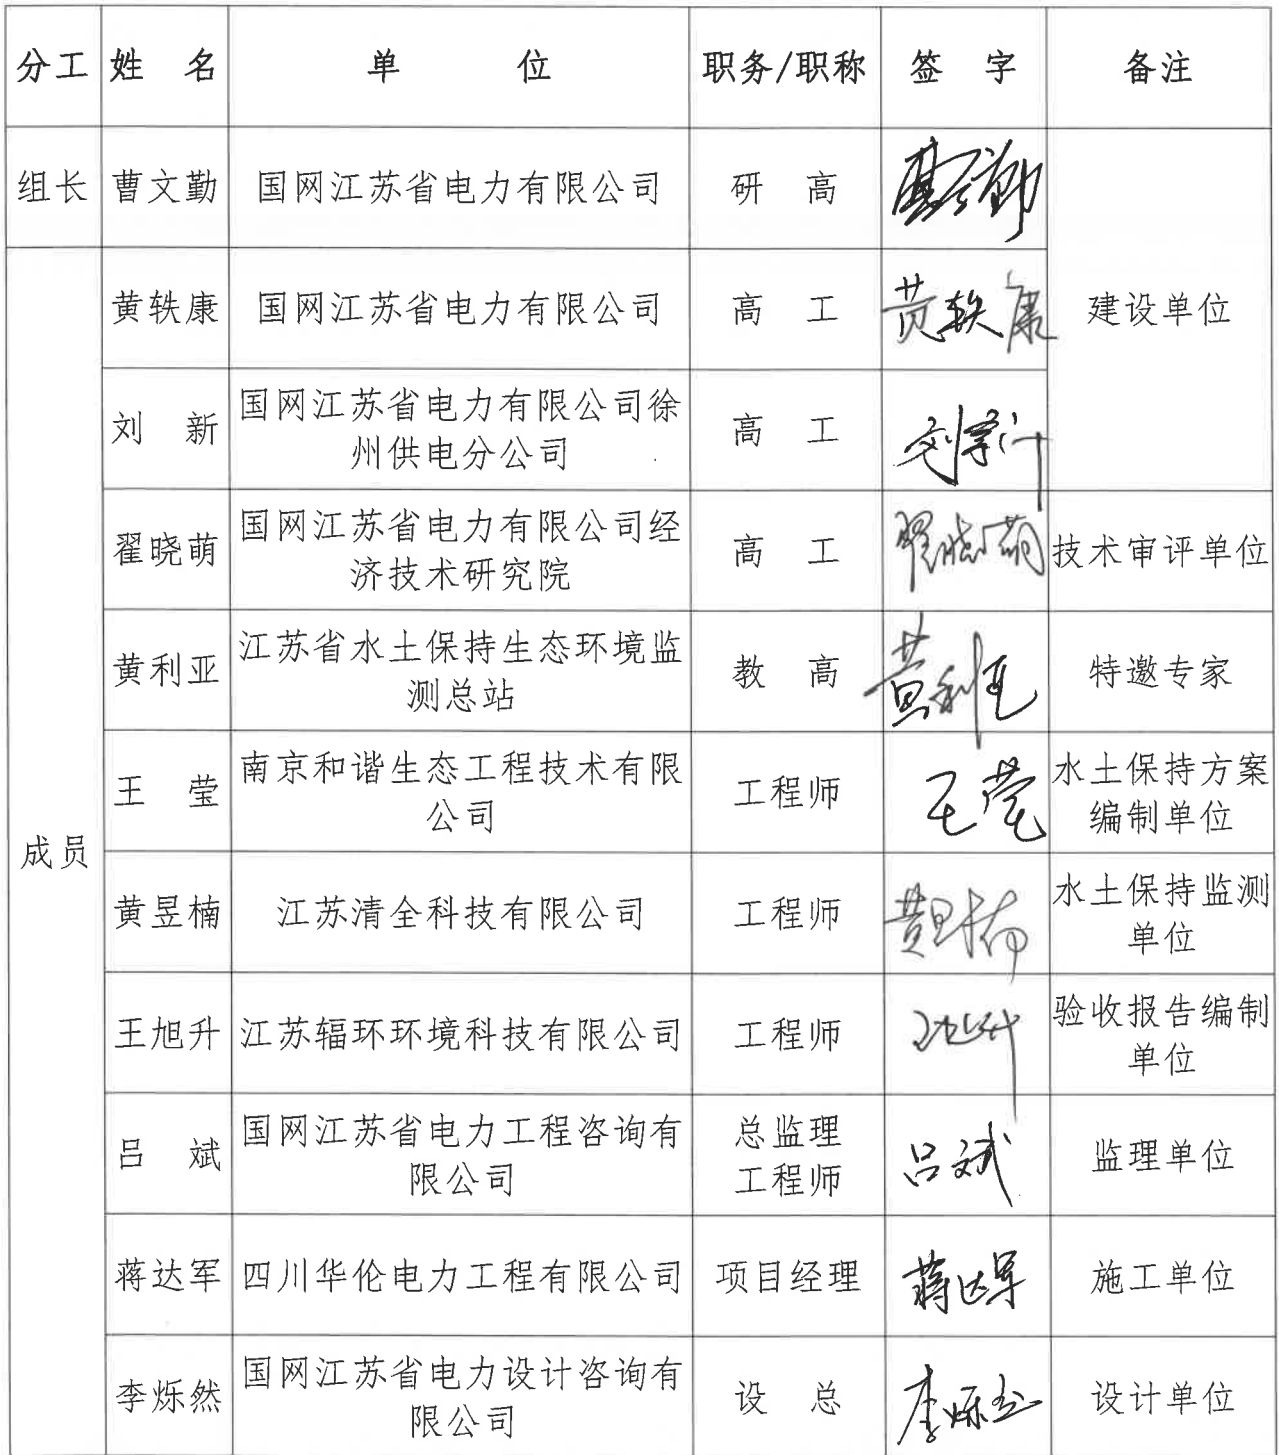 分工 姓 名 单 位 职务/职称 签 字 备注
组长 曹文勤 国网江苏省电力有限公司 研 高 曹文勤
黄轶康 国网江苏省电力有限公司 高 工 黄轶康 建设单位
刘 新 国网江苏省电力有限公司徐
州供电分公司 高 工 刘新
翟晓萌 国网江苏省电力有限公司经
济技术研究院 高 工 翟晓萌 技术审评单位
黄利亚 江苏省水土保持生态环境监
测总站 教 高 黄利亚 特邀专家
成员
王 莹 南京和谐生态工程技术有限
公司 工程师 王莹 水土保持方案
编制单位
黄昱楠 江苏清全科技有限公司 工程师 黄昱楠 水土保持监测
单位
王旭升 江苏辐环环境科技有限公司 工程师 王旭升 验收报告编制
单位
吕 斌 国网江苏省电力工程咨询有
限公司 总监理
工程师 吕斌 监理单位
蒋达军 四川华伦电力工程有限公司 项目经理 蒋达军 施工单位
李烁然 国网江苏省电力设计咨询有
限公司 设 总 李烁然 设计单位